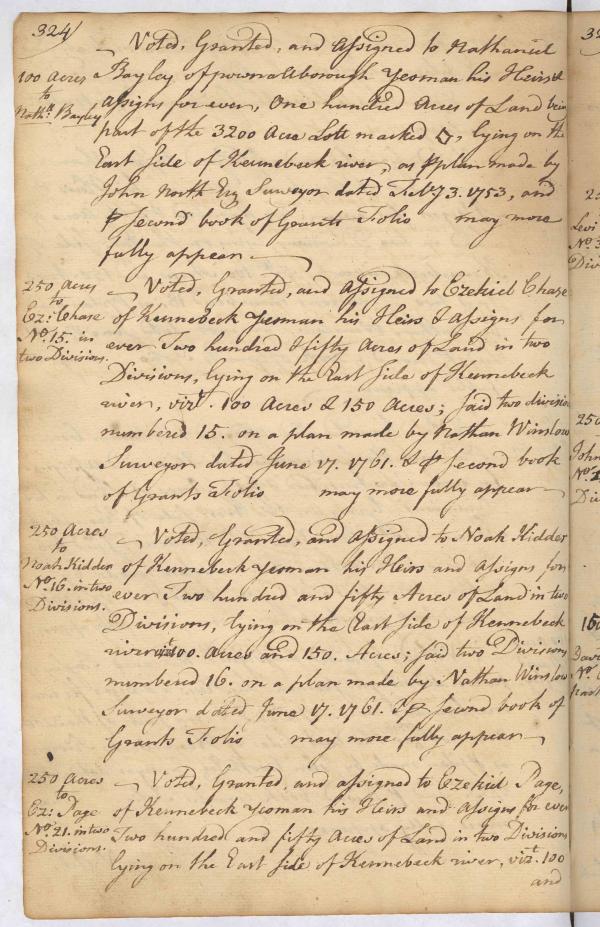 324
Voted, Granted, and Assigned to Nathaniel
100 Acres
to
Nathll. Bayley
Bayley of pownalborough Yeoman his Heirs &
assigns for ever, One hundred Acres of Land bein
part of the 3200 Acre Lott marked ◇, lying on the
East Side of Kennebeck river, as ⅌ plan made by
John North Esq Surveyor dated Feby. 3. 1753, and
⅌ Second book of Grants Folio may more
fully appear
250 Acres
to
Ez: Chase
No. 15. in
two Divisions.
Voted, Granted, and Assigned to Ezekiel Chase
of Kennebeck Yeoman his Heirs & Assigns for
ever Two hundred & fifty Acres of Land in two
Divisions, lying on the East Side of Kennebeck
river, vizt. 100 Acres & 150 Acres; Said two division
numbered 15. on a plan made by Nathan Winslow
Surveyor dated June 17. 1761. & ⅌ Second book
of Grants Folio may more fully appear
250 Acres
to
Noah Kidder
No. 16. in two
Divisions.
Voted, Granted, and Assigned to Noah Kidder
of Kennebeck Yeoman his Heirs and Assigns for
ever Two hundred and fifty Acres of Land in two
Divisions, lying on the East Side of Kennebeck
river vizt. 100. Acres and 150. Acres; Said two Divisions
numbered 16. on a plan made by Nathan Winslow
Surveyor dated June 17. 1761. & ⅌ Second book of
Grants Folio may more fully appear
250 Acres
to
Ez: Page
No. 21. in two
Divisions.
Voted, Granted, and assigned to Ezekiel Page,
of Kennebeck Yeoman his Heirs and Assigns for ever
Two hundred and fifty Acres of Land in two Divisions
lying on the East Side of Kennebeck river, vizt. 100
and